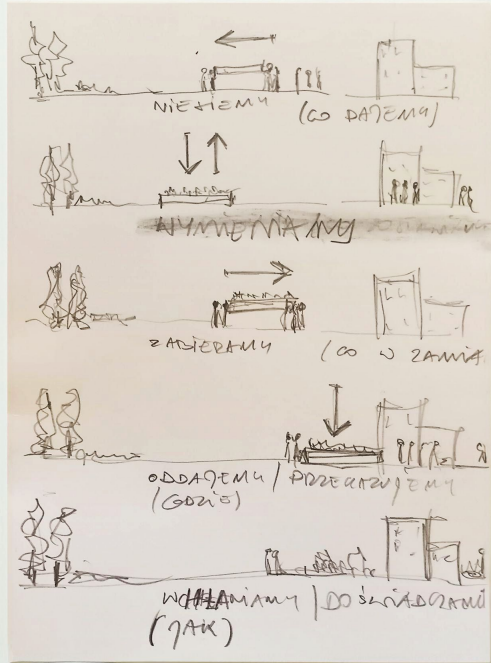 NIESIEMY (CO DAJEMY)
WYMIENIAMY
ZABIERAMY (CO W ZAMIA
ODDAJEMY / PRZEKAZUJEMY
(GDZIE)
WCHŁANIAMY / DOŚWIADCZAMY
(JAK)